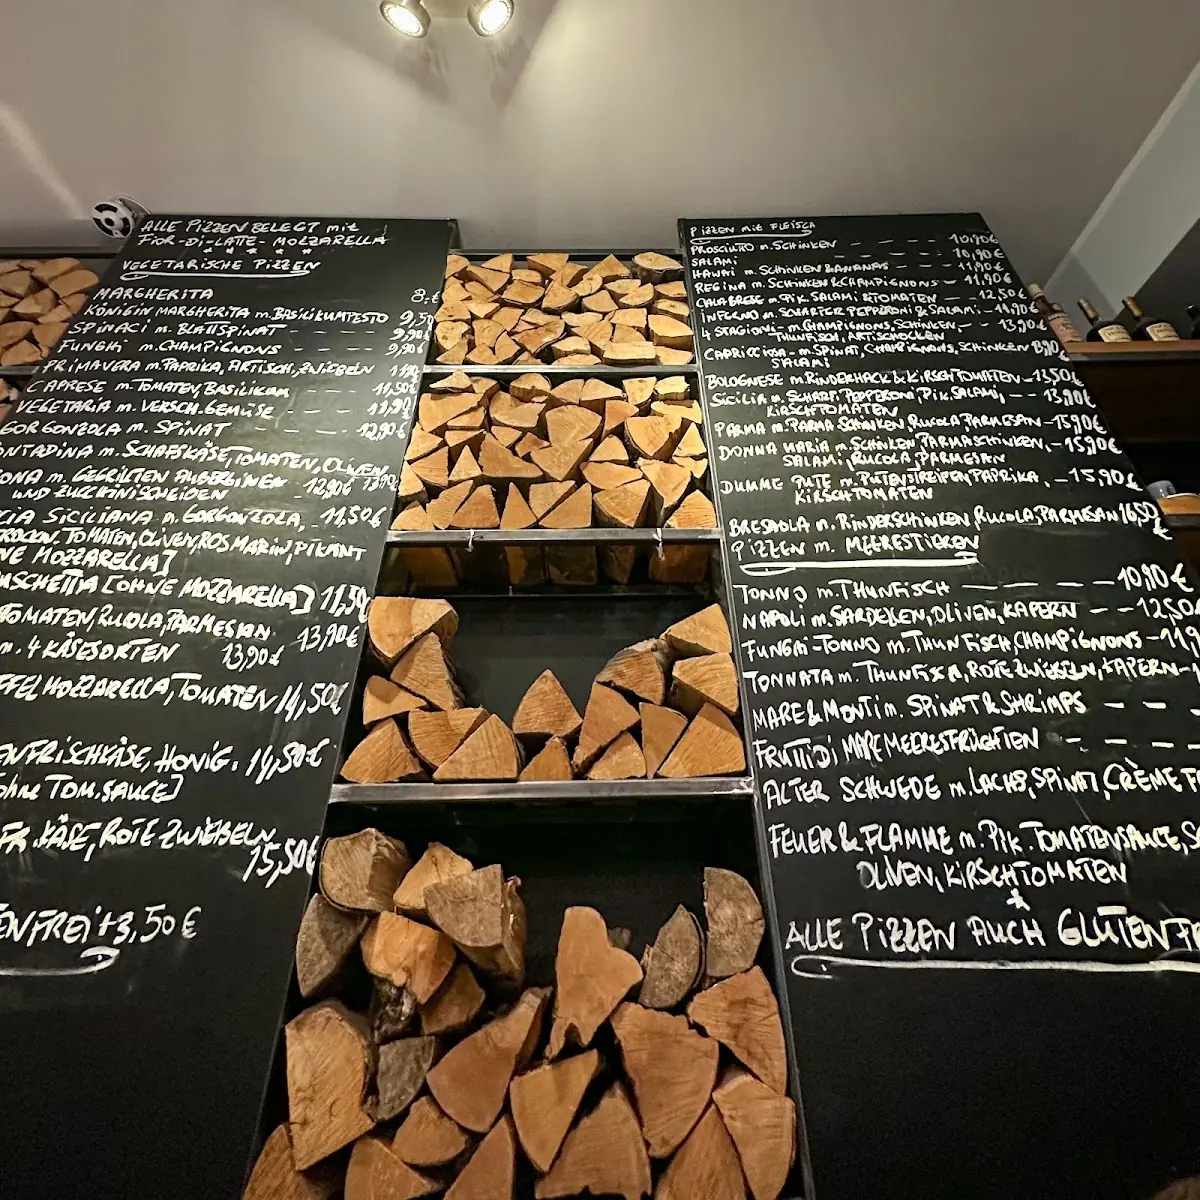 ALLE PIZZEN BELEGT mit
FIOR-DI-LATTE-MOZZARELLA
VEGETARISCHE PIZZEN
MARGHERITA 8,-€
KÖNIGIN MARGHERITA m. BASILIKUMPESTO 9,50
SPINACI m. BLATTSPINAT - - - 9,90€
FUNGHI m. CHAMPIGNONS - - - 9,90€
PRIMAVERA m. PAPRIKA, ARTISCH, ZWIEBELN
CAPRESE m. TOMATEN, BASILIKUM - - 11,50€
VEGETARIA m. VERSCH. GEMÜSE - - - 11,90€
GORGONZOLA m. SPINAT - - - 12,90€
ONTADINA m. SCHAFSKÄSE, TOMATEN, OLIVEN, 13,90€
ONA m. GEGRILTEN AUBERGINEN - 12,90€
UND ZUCCHINISCHEIBEN
CIA SICILIANA m. GORGONZOLA, - 11,50€
TROCKN. TOMATEN, OLIVEN, ROSMARIN, PIKANT
NE MOZZARELLA]
USCHETTA [OHNE MOZZARELLA] 11,50
TOMATEN, RUCOLA, PARMESAN 13,90€
m. 4 KÄSESORTEN 13,90€
FFEL MOZZARELLA, TOMATEN 14,50€
ENFRISCHKÄSE, HONIG. 14,50€
ohne TOM.SAUCE]
FR. KÄSE, ROTE ZWIEBELN
15,50€
ENFREI +3,50€
PIZZEN mit FLEISCH
PROSCIUTTO m. SCHINKEN - - - - 10,90€
SALAMI - - - - 10,90€
HAWAI m. SCHINKEN & ANANAS - - - 11,90€
REGINA m. SCHINKEN & CHAMPIGNONS - 11,90€
CALABRESE m. PIK. SALAMI & TOMATEN - 12,50€
INFERNO m. SCHARFER PEPPERONI & SALAMI - 11,90€
4 STAGIONI - m. CHAMPIGNONS, SCHINKEN - 13,90€
THUNFISCH, ARTISCHOCKEN
CAPRICCIOSA - m. SPINAT, CHAMPIGNONS, SCHINKEN 13,90€
SALAMI
BOLOGNESE m. RINDERHACK & KIRSCHTOMATEN - 13,50€
SICILIA m. SCHARF. PEPPERONI, PIK. SALAMI, - - 13,90€
KIRSCHTOMATEN
PARMA m. PARMASCHINKEN, RUCOLA, PARMESAN - 15,90€
DONNA MARIA m. SCHINKEN, PARMASCHINKEN, - 15,90€
SALAMI, RUCOLA, PARMESAN
DUMME PUTE m. PUTENSTREIFEN, PAPRIKA, - 15,90€
KIRSCHTOMATEN
BRESAOLA m. RINDERSCHINKEN, RUCOLA, PARMESAN 16,50
PIZZEN m. MEERESTIEREN
TONNO m. THUNFISCH - - - - 10,90€
NAPOLI m. SARDELLEN, OLIVEN, KAPERN - - 12,50
FUNGHI-TONNO m. THUNFISCH, CHAMPIGNONS - 11,9
TONNATA m. THUNFISCH, ROTE ZWIEBELN, KAPERN -
MARE & MONTI m. SPINAT & SHRIMPS - - -
FRUTTI DI MARE MEERESFRÜCHTEN - - - -
ALTER SCHWEDE m. LACHS, SPINAT, CRÈME F
FEUER & FLAMME m. PIK. TOMATENSAUCE, S
OLIVEN, KIRSCHTOMATEN
ALLE PIZZEN AUCH GLUTENFR